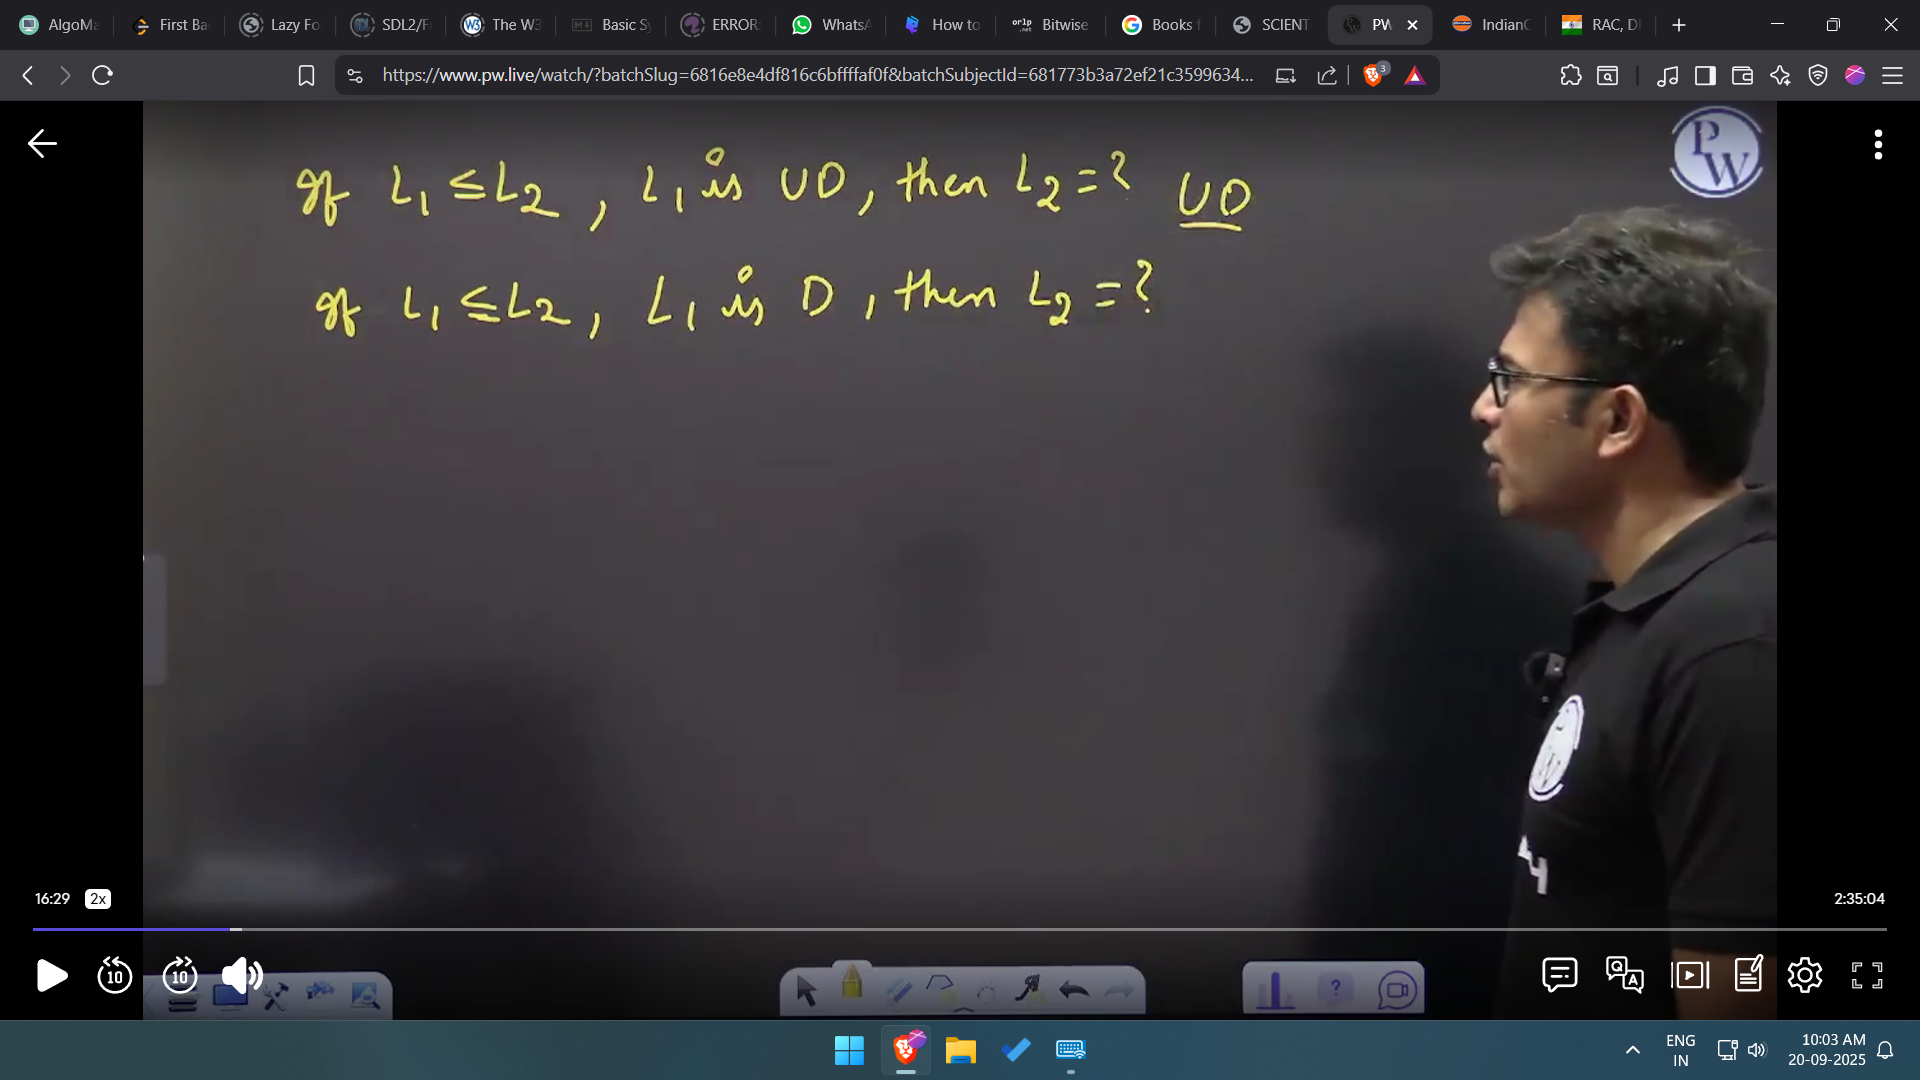 AlgoMa
First Ba
Lazy Fo
SDL2/F
The W3
Basic Sy
ERROR:
WhatsA
How to
Bitwise
Books f
SCIENT
PW
IndianC
RAC, D
https://www.pw.live/watch/?batchSlug=6816e8e4df816c6bffffaf0f&batchSubjectId=681773b3a72ef21c3599634...
3
PW
If L1 ≤ L2 , L1 is UD, then L2 = ? UD
If L1 ≤ L2, L1 is D, then L2 = ?
16:29 2x
2:35:04
10
10
ENG
IN
10:03 AM
20-09-2025